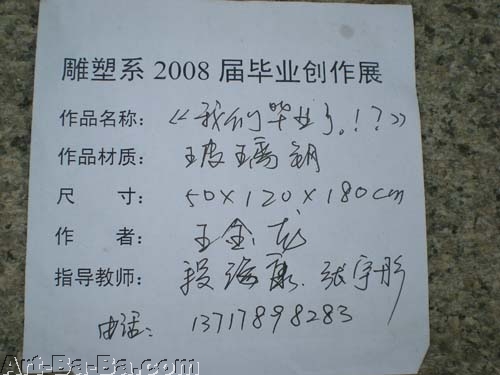 雕塑系 2008 届毕业创作展
作品名称：《我们毕业了。！？》
作品材质：玻璃钢
尺 寸：50×120×180cm
作 者：王金龙
指导教师：段海康、张宇彤
电话：13717898283
Art-Ba-Ba.com
Art-Ba-Ba.com